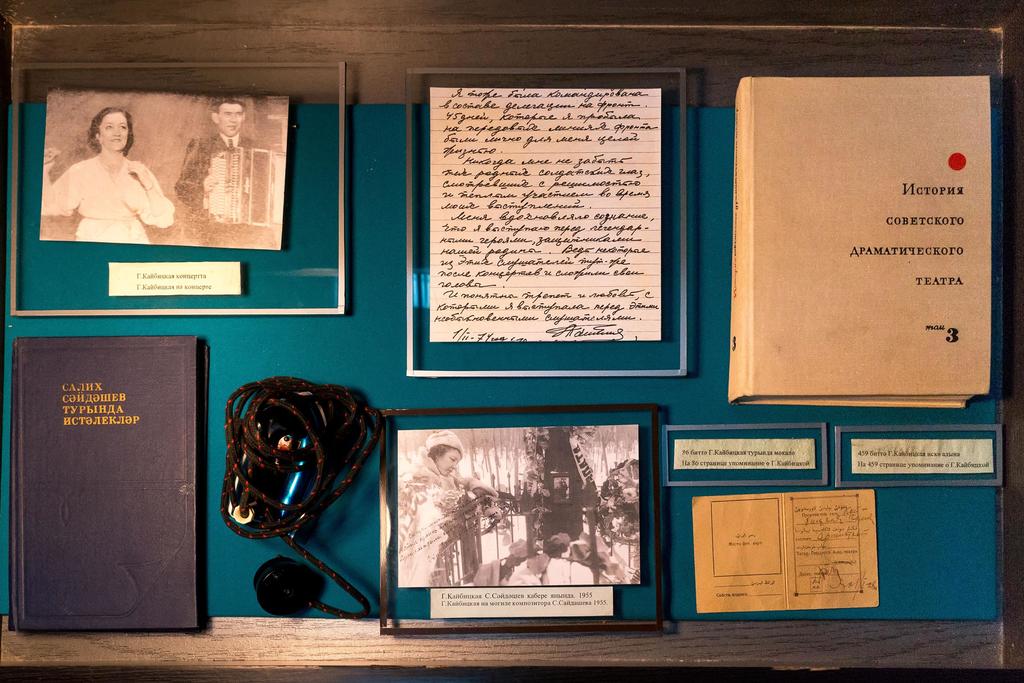 Г.Кайбицкая концертта
Г.Кайбицкая на концерте
Я тоже была командирована
в составе делегации на фронт.
45 дней, которые я пробыла
на передовых линиях фронта
были лично для меня целой
жизнью.
Никогда мне не забыть
тех родных солдатских глаз,
смотревших с решимостью
и тёплым участием во время
моих выступлений.
Меня вдохновляло сознание,
что я выступаю перед легендар-
ными героями, защитниками
нашей родины. Ведь некоторые
из этих слушателей тут-же
после концертов и сложили свои
головы.
И понятно трепет и любовь, с
которыми я выступала перед этими
необыкновенными слушателями.
1/II-74 год
История
советского
драматического
театра
том 3
3
САЛИХ
СӘЙДӘШЕВ
ТУРЫНДА
ИСТӘЛЕКЛӘР
Г.Кайбицкая С.Сәйдәшев кабере янында. 1955
Г.Кайбицкая на могиле композитора С.Сайдашева 1955.
86 биттә Г.Кайбицкая турында мәкалә
На 86 странице упоминание о Г.Кайбицкой
459 биттә Г.Кайбицкая искә алына
На 459 странице упоминание о Г.Кайбицкой
Место фот. карт.